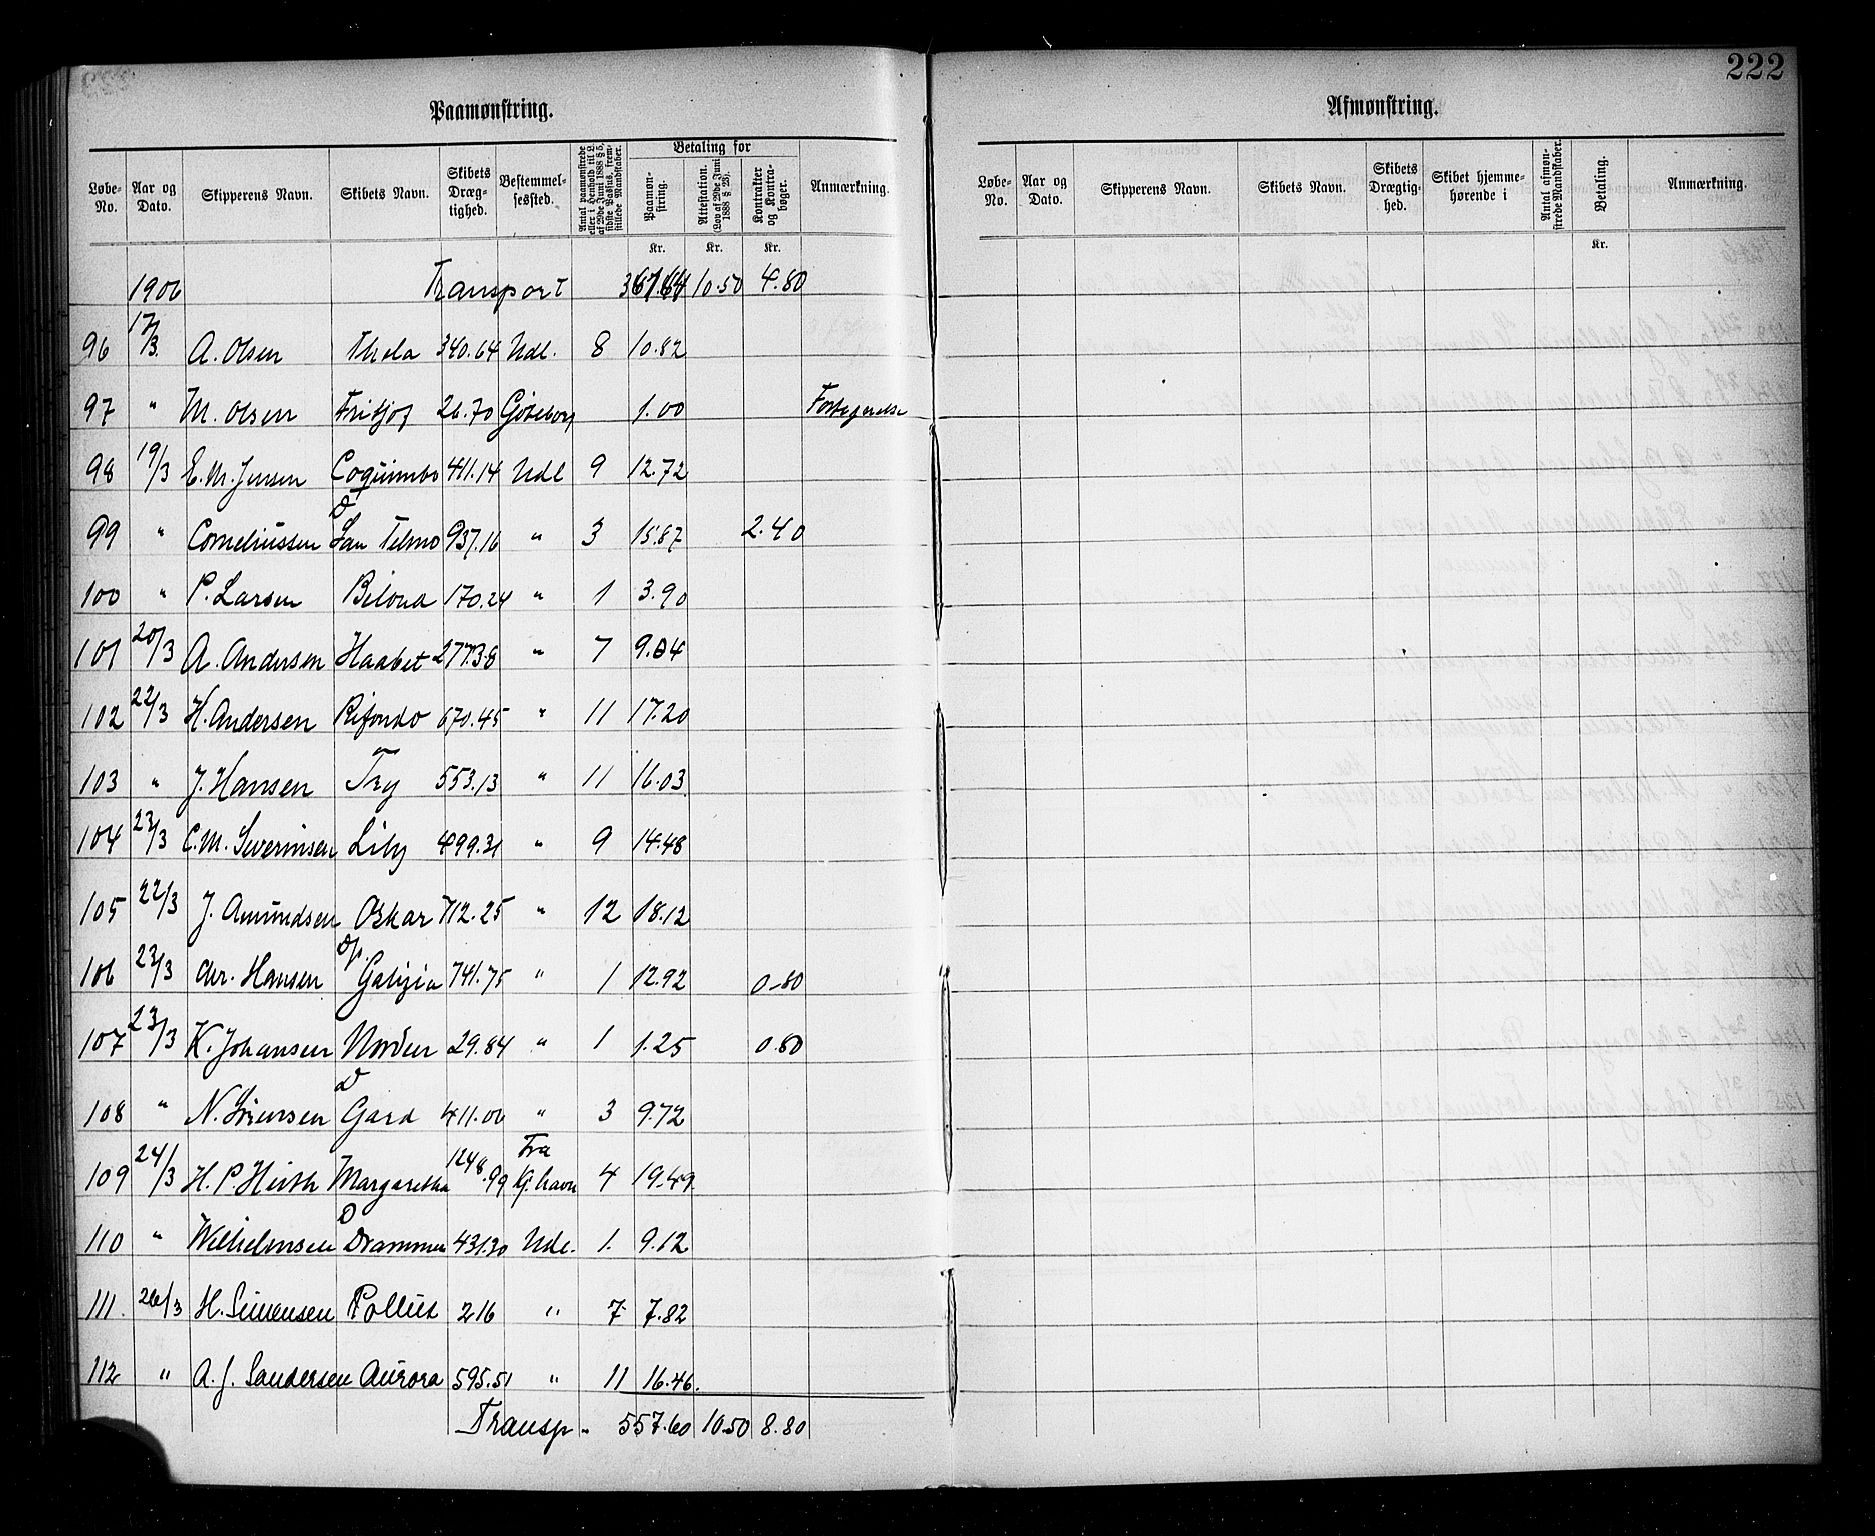 222
Paamønstring.
Afmønstring.
Løbe-No. Aar og Dato. Skipperens Navn. Skibets Navn. Skibets Dræg-tighed. Bestemmel-sessted. Antal paamønstrede eller i Henhold til L. af 29de Juni 1888 § 5, sidste Passus, frem-stillede Mandskaber. Betaling for Paamøn-string. Attestation. (Lov af 29de Juni 1888 § 23). Kontrakter og Kontra-bøger. Anmærkning.
Løbe-No. Aar og Dato. Skipperens Navn. Skibets Navn. Skibets Drægtig-hed. Skibet hjemme-hørende i Antal afmøn-strede Mandskaber. Betaling. Anmærkning.
Kr. Kr. Kr. Kr.
1906 Transport 367.64 10.50 4.80
96 17/3 A. Olsen Thela 340.64 Udl. 8 10.82
97 " M. Olsen Fritjof 26.70 Göteborg 1.00
98 19/3 E. M. Jensen Coquimbo 411.14 Udl 9 12.72
99 " Corneliussen D San Telmo 937.16 " 3 15.87 2.40
100 " P. Larsen Bilona 170.24 " 1 3.90
101 20/3 A. Andersen Haabet 277.38 " 7 9.04
102 22/3 H. Andersen Rifondo 670.45 " 11 17.20
103 " J. Hansen Try 553.13 " 11 16.03
104 23/3 C. M. Severinsen Liby 499.31 " 9 14.48
105 22/3 J. Amundsen Oskar 712.25 " 12 18.12
106 23/3 Chr. Hansen D/s. Galizia 741.75 " 1 12.92 0.80
107 23/3 K. Johansen Norden 29.84 " 1 1.25 0.80
108 " N. Sörensen D Gard 411.06 " 3 9.72
109 24/3 H. P. Hirth Margaretha 1248.99 Fra Kj.havn 4 19.49
110 " Wilhelmsen D Drammen 431.30 Udl. 1. 9.12
111. 26/3 H. Simensen Pollux 216 " 7 7.82
112 " A. J. Sandersen Aurora 595.51 " 11 16.46.
Transp " 557.60 10.50 8.80